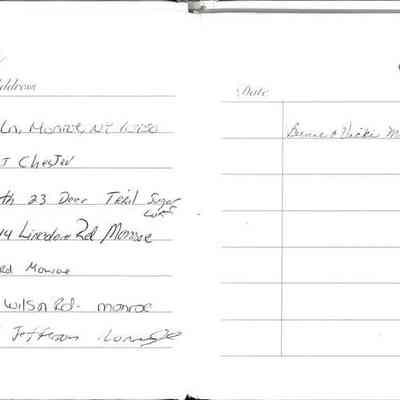 Address
Ln, Monroe, NY 10950
T Chester
th 23 Deer Trail Sugar
Loaf
44 Rd Monroe
Rd Monroe
Wilson Rd- monroe
Jefferson
Date
Bernie & Vickie M